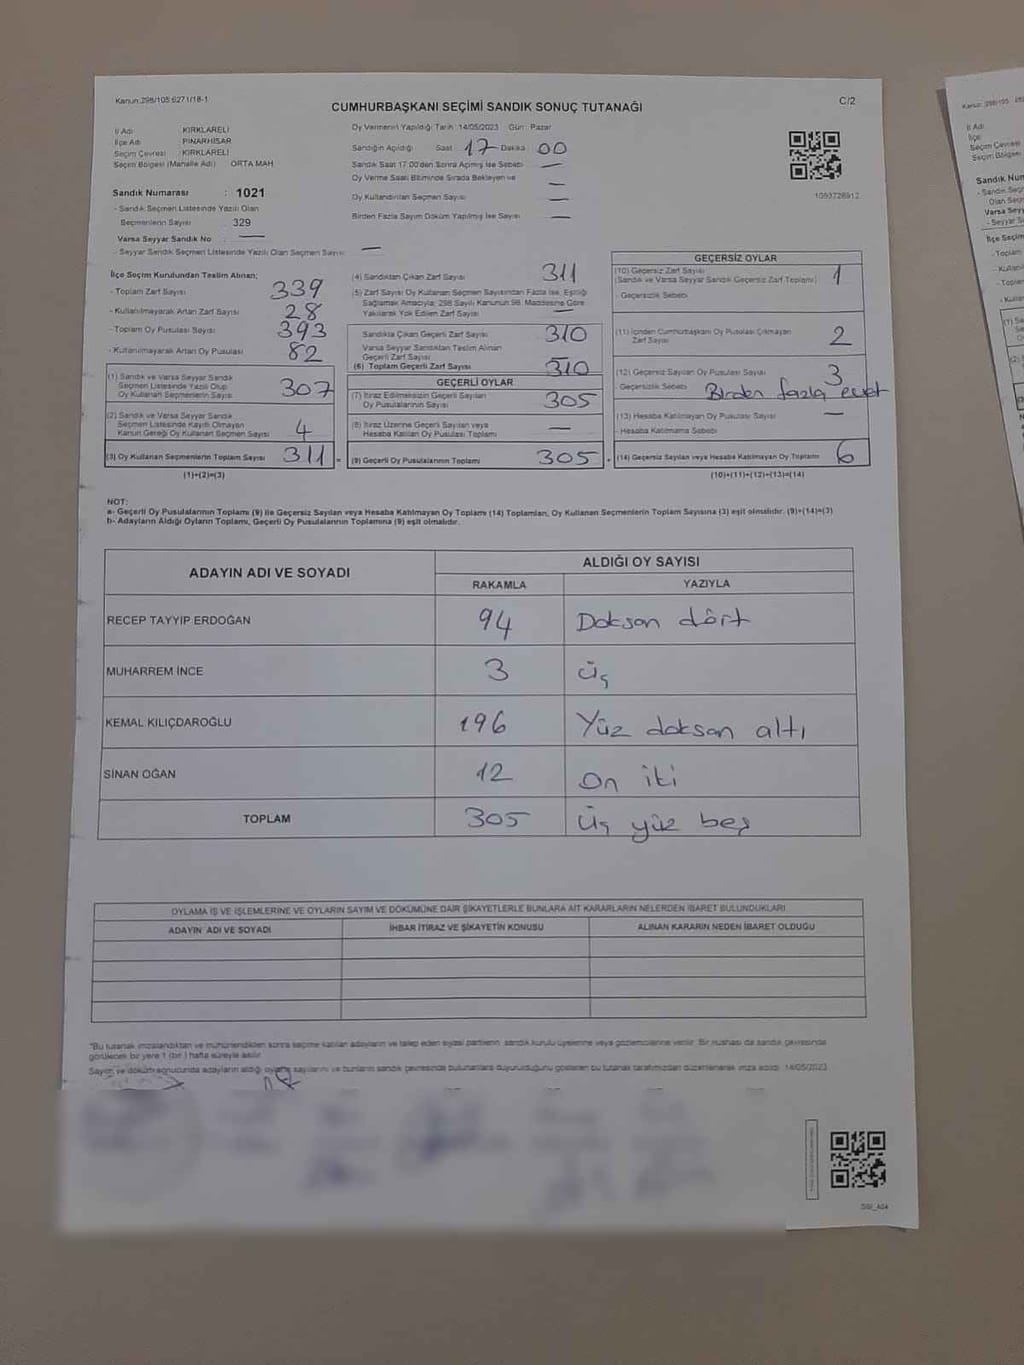 Kanun:298/105 6271/18-1
CUMHURBAŞKANI SEÇİMİ SANDIK SONUÇ TUTANAĞI
C/2
İl Adı : KIRKLARELİ
İlçe Adı : PINARHİSAR
Seçim Çevresi : KIRKLARELİ
Seçim Bölgesi (Mahalle Adı) : ORTA MAH.
Sandık Numarası : 1021
- Sandık Seçmen Listesinde Yazılı Olan
Seçmenlerin Sayısı : 329
Varsa Seyyar Sandık No : —
- Seyyar Sandık Seçmen Listesinde Yazılı Olan Seçmen Sayısı : —
Oy Vermenin Yapıldığı Tarih : 14/05/2023 Gün : Pazar
Sandığın Açıldığı Saat 17 Dakika 00
Sandık Saat 17.00'den Sonra Açılmış İse Sebebi —
Oy Verme Saati Bitiminde Sırada Bekleyen ve
Oy Kullandırılan Seçmen Sayısı —
Birden Fazla Sayım Döküm Yapılmış İse Sayısı —
1093728912
İlçe Seçim Kurulundan Teslim Alınan;
- Toplam Zarf Sayısı 339
- Kullanılmayarak Artan Zarf Sayısı 28
- Toplam Oy Pusulası Sayısı 393
- Kullanılmayarak Artan Oy Pusulası 82
(1) Sandık ve Varsa Seyyar Sandık
Seçmen Listesinde Yazılı Olup
Oy Kullanan Seçmenlerin Sayısı 307
(2) Sandık ve Varsa Seyyar Sandık
Seçmen Listesinde Kayıtlı Olmayan
Kanun Gereği Oy Kullanan Seçmen Sayısı 4
(3) Oy Kullanan Seçmenlerin Toplam Sayısı 311 =
(1)+(2)=(3)
(4) Sandıktan Çıkan Zarf Sayısı 311
(5) Zarf Sayısı Oy Kullanan Seçmen Sayısından Fazla İse, Eşitliği
Sağlamak Amacıyla; 298 Sayılı Kanunun 98. Maddesine Göre
Yakılarak Yok Edilen Zarf Sayısı —
Sandıkta Çıkan Geçerli Zarf Sayısı 310
Varsa Seyyar Sandıktan Teslim Alınan
Geçerli Zarf Sayısı
(6) Toplam Geçerli Zarf Sayısı 310
GEÇERLİ OYLAR
(7) İtiraz Edilmeksizin Geçerli Sayılan
Oy Pusulalarının Sayısı 305
(8) İtiraz Üzerine Geçerli Sayılan veya
Hesaba Katılan Oy Pusulası Toplamı —
(9) Geçerli Oy Pusulalarının Toplamı 305 +
GEÇERSİZ OYLAR
(10) Geçersiz Zarf Sayısı
(Sandık ve Varsa Seyyar Sandık Geçersiz Zarf Toplamı) 1
- Geçersizlik Sebebi
(11) İçinden Cumhurbaşkanı Oy Pusulası Çıkmayan
Zarf Sayısı 2
(12) Geçersiz Sayılan Oy Pusulası Sayısı 3
- Geçersizlik Sebebi Birden fazla evet
(13) Hesaba Katılmayan Oy Pusulası Sayısı —
- Hesaba Katılmama Sebebi
(14) Geçersiz Sayılan veya Hesaba Katılmayan Oy Toplamı 6
(10)+(11)+(12)+(13)=(14)
NOT:
a- Geçerli Oy Pusulalarının Toplamı (9) ile Geçersiz Sayılan veya Hesaba Katılmayan Oy Toplamı (14) Toplamları, Oy Kullanan Seçmenlerin Toplam Sayısına (3) eşit olmalıdır. (9)+(14)=(3)
b- Adayların Aldığı Oyların Toplamı, Geçerli Oy Pusulalarının Toplamına (9) eşit olmalıdır.
ADAYIN ADI VE SOYADI ALDIĞI OY SAYISI
RAKAMLA YAZIYLA
RECEP TAYYİP ERDOĞAN 94 Doksan dört
MUHARREM İNCE 3 üç
KEMAL KILIÇDAROĞLU 196 Yüz doksan altı
SİNAN OĞAN 12 On iki
TOPLAM 305 üç yüz beş
OYLAMA İŞ VE İŞLEMLERİNE VE OYLARIN SAYIM VE DÖKÜMÜNE DAİR ŞİKAYETLERLE BUNLARA AİT KARARLARIN NELERDEN İBARET BULUNDUKLARI
ADAYIN ADI VE SOYADI İHBAR İTİRAZ VE ŞİKAYETİN KONUSU ALINAN KARARIN NEDEN İBARET OLDUĞU
"Bu tutanak imzalandıktan ve mühürlendikten sonra seçime katılan adayların ve talep eden siyasi partilerin sandık kurulu üyelerine veya gözlemcilerine verilir. Bir nüshası da sandık çevresinde
görülecek bir yere 1 (bir) hafta süreyle asılır.
Sayım ve döküm sonucunda adayların aldığı oyların sayılarını ve bunların sandık çevresinde bulunanlara duyurulduğunu gösteren bu tutanak tarafımızdan düzenlenerek imza edildi. 14/05/2023
Kanun: 298/105
İl Adı
İlçe
Seçim Çevresi
Seçim Bölgesi